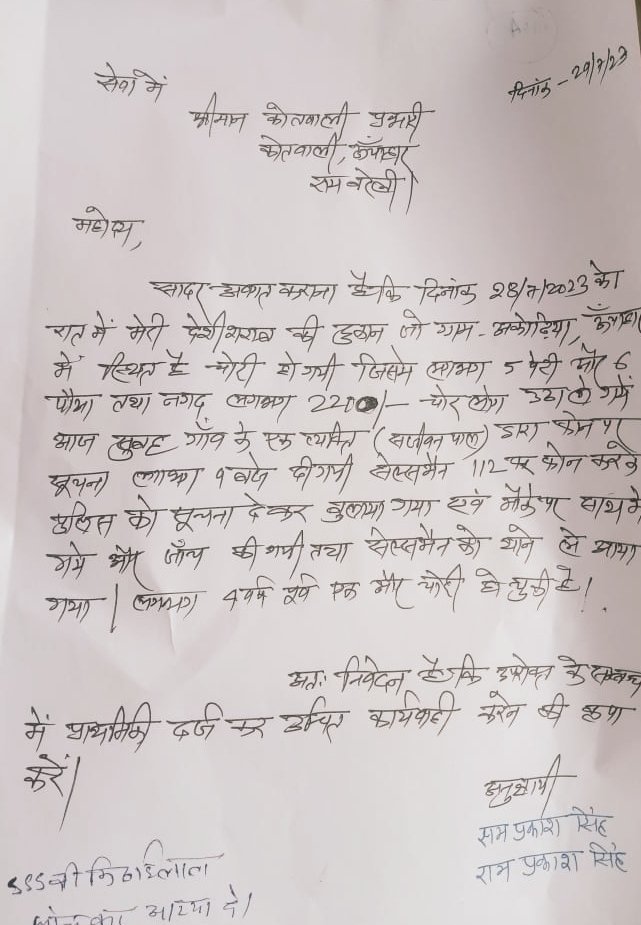 सेवा में
दिनांक - 29/7/23
श्रीमान कोतवाली प्रभारी
कोतवाली, ऊँचाहार
राय बरेली।
महोदय,
सादर अवगत कराना है कि दिनांक 28/7/2023 को
रात में मेरी देशी शराब की दुकान जो ग्राम - अकोढ़िया, ऊँचाहार
में स्थित है चोरी हो गयी जिसमे लगभग 5 पेटी और 6
पौवा तथा नगद लगभग 2200/- चोर लोग उठा ले गये
आज सुबह गाँव के एक व्यक्ति (सजीवन पाल) द्वारा फोन पर
सूचना लगभग 9 बजे दी गयी सेल्समैन 112 पर फोन करके
पुलिस को सूचना देकर बुलाया गया एवं मौके पर साथ मे
गये और जाँच की गयी तथा सेल्समैन को थाने ले आया
गया। लगभग 4 वर्ष पूर्व एक और चोरी हो चुकी है।
अतः निवेदन है कि उपरोक्त के सम्बन्ध
में प्राथमिकी दर्ज कर उचित कार्यवाही करने की कृपा
करें।
राम प्रकाश सिंह
राम प्रकाश सिंह
SSS श्री मिठाईलाल
आख्या दे।